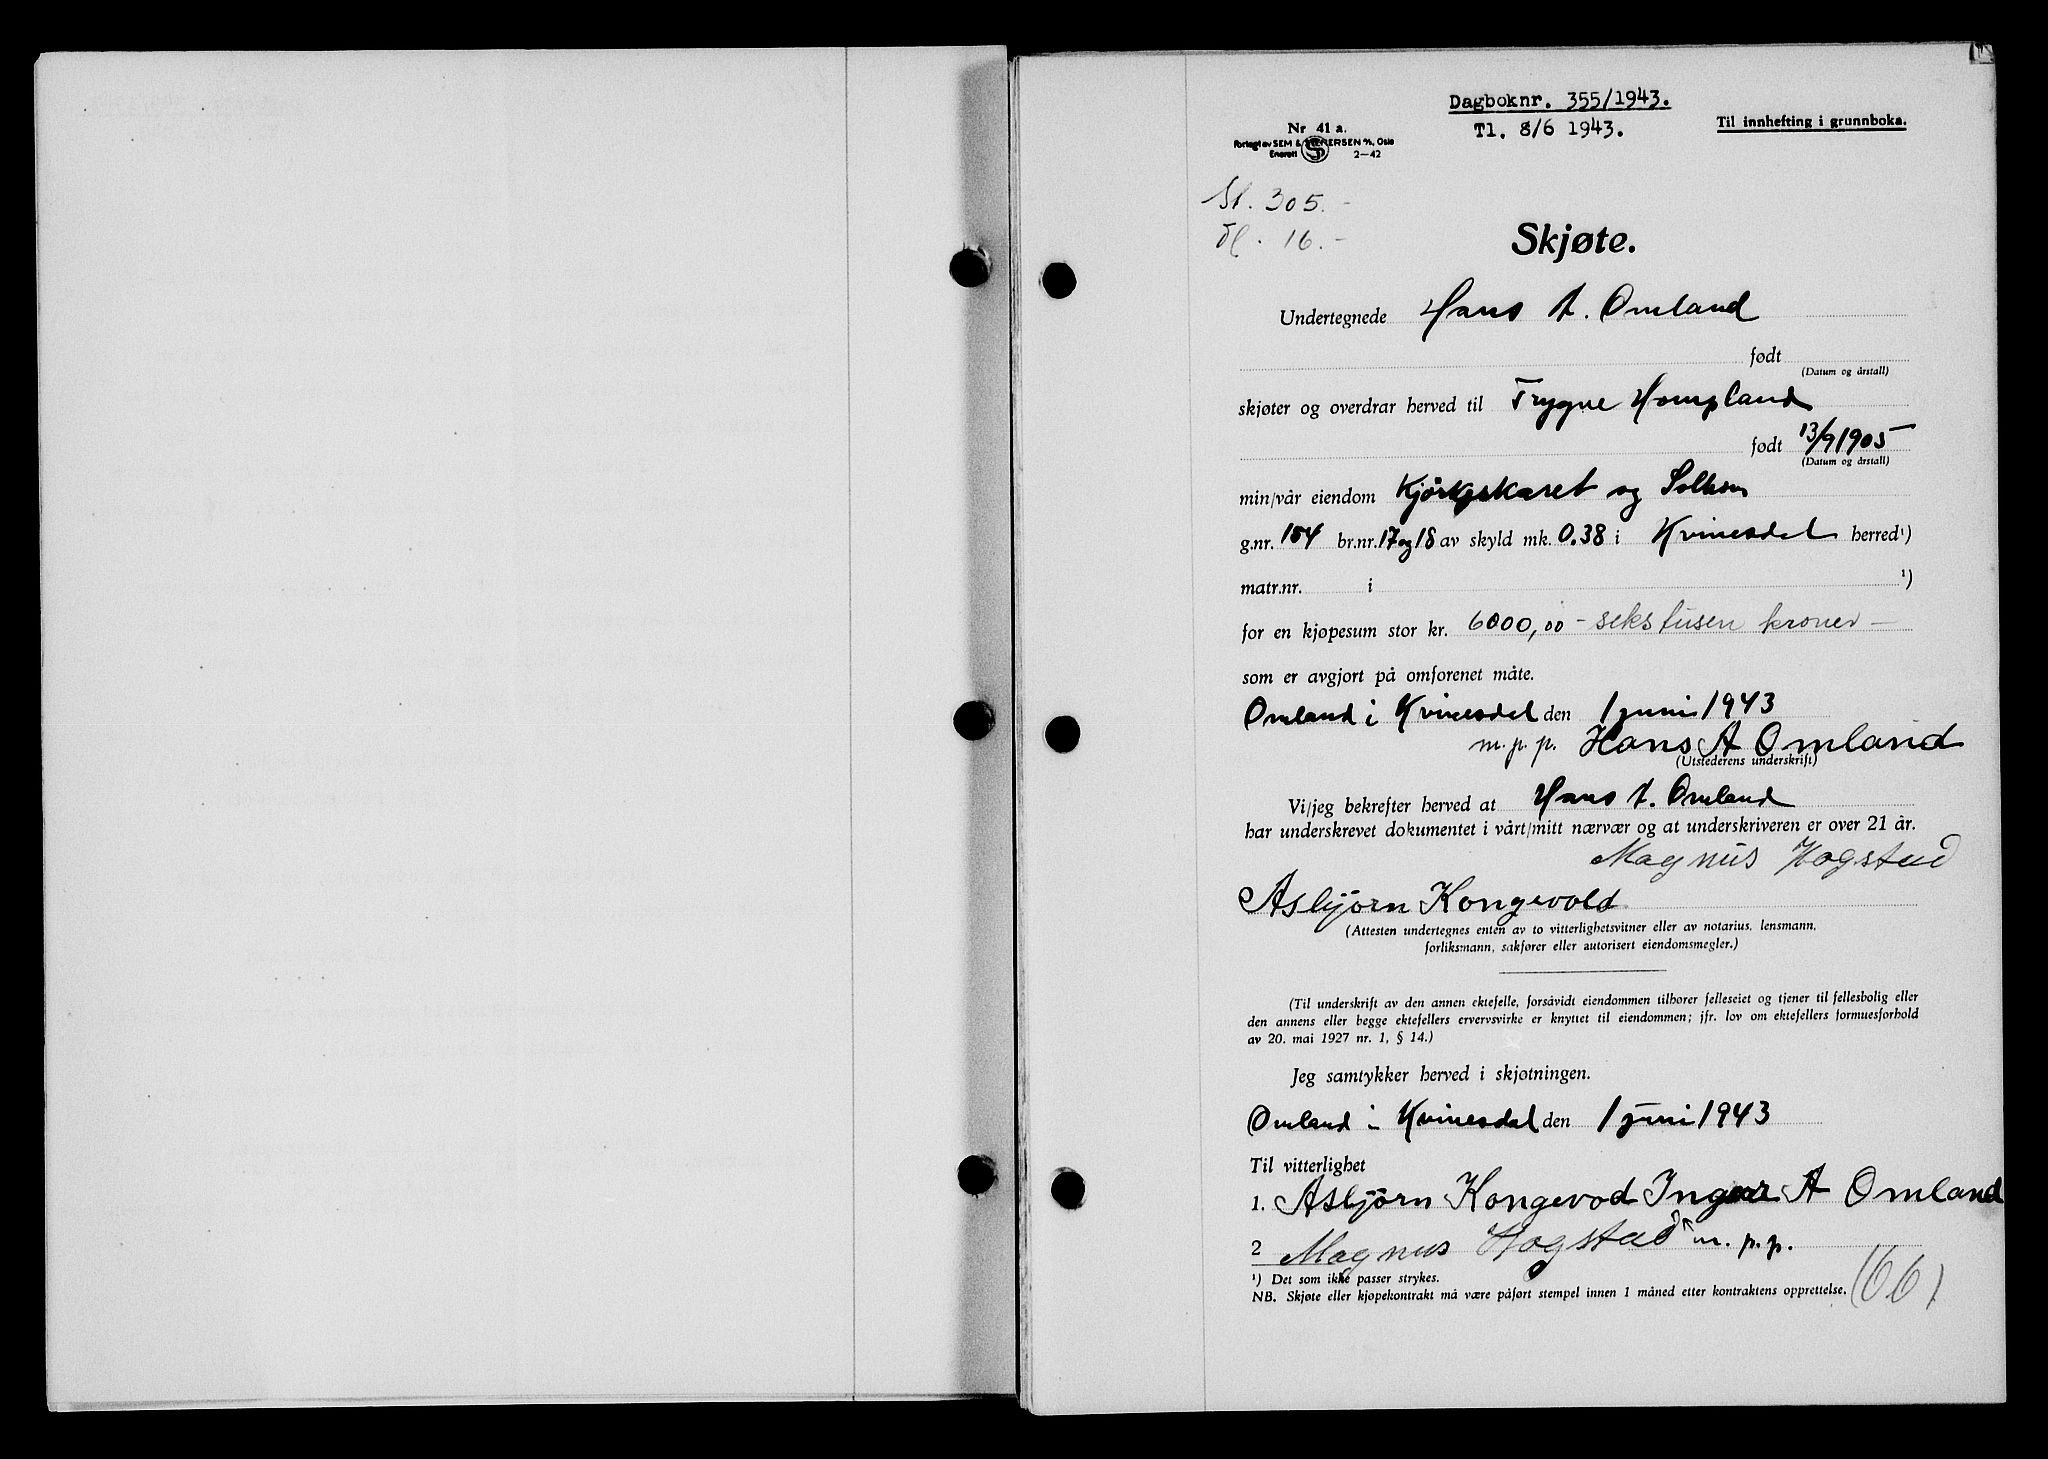 Dagboknr. 355/1943.
Tl. 8/6 1943.
Til innhefting i grunnboka.
Nr 41 a.
Forlagt av SEM & STENERSEN A/S, Oslo
Enerett 2—42
St. 305.-
Tl. 16.-
Skjøte.
Undertegnede Hans A. Omland
født
(Datum og årstall)
skjøter og overdrar herved til Trygve Hompland
født 13/9 1905
(Datum og årstall)
min/vår eiendom Kjørkjeskaret og
g.nr. 184 br.nr. 17 og 18 av skyld mk. 0.38 i Kvinesdal herred¹)
matr.nr. i ¹)
for en kjøpesum stor kr. 6000,00 - sekstusen kroner -
som er avgjort på omforenet måte.
Omland i Kvinesdal den 1 juni 1943
m. p. p. Hans A Omland
(Utstederens underskrift)
Vi/jeg bekrefter herved at Hans A. Omland
har underskrevet dokumentet i vårt/mitt nærvær og at underskriveren er over 21 år.
Magnus Hogstad
Asbjørn Kongevold
(Attesten undertegnes enten av to vitterlighetsvitner eller av notarius, lensmann,
forliksmann, sakfører eller autorisert eiendomsmegler.)
(Til underskrift av den annen ektefelle, forsåvidt eiendommen tilhører felleseiet og tjener til fellesbolig eller
den annens eller begge ektefellers ervervsvirke er knyttet til eiendommen; jfr. lov om ektefellers formuesforhold
av 20. mai 1927 nr. 1, § 14.)
Jeg samtykker herved i skjøtningen.
Omland i Kvinesdal den 1 juni 1943
Til vitterlighet
1. Asbjørn Kongevod Inger A Omland
2 Magnus Hogstad m. p. p.
¹) Det som ikke passer strykes.
NB. Skjøte eller kjøpekontrakt må være påført stempel innen 1 måned etter kontraktens opprettelse.
(66)